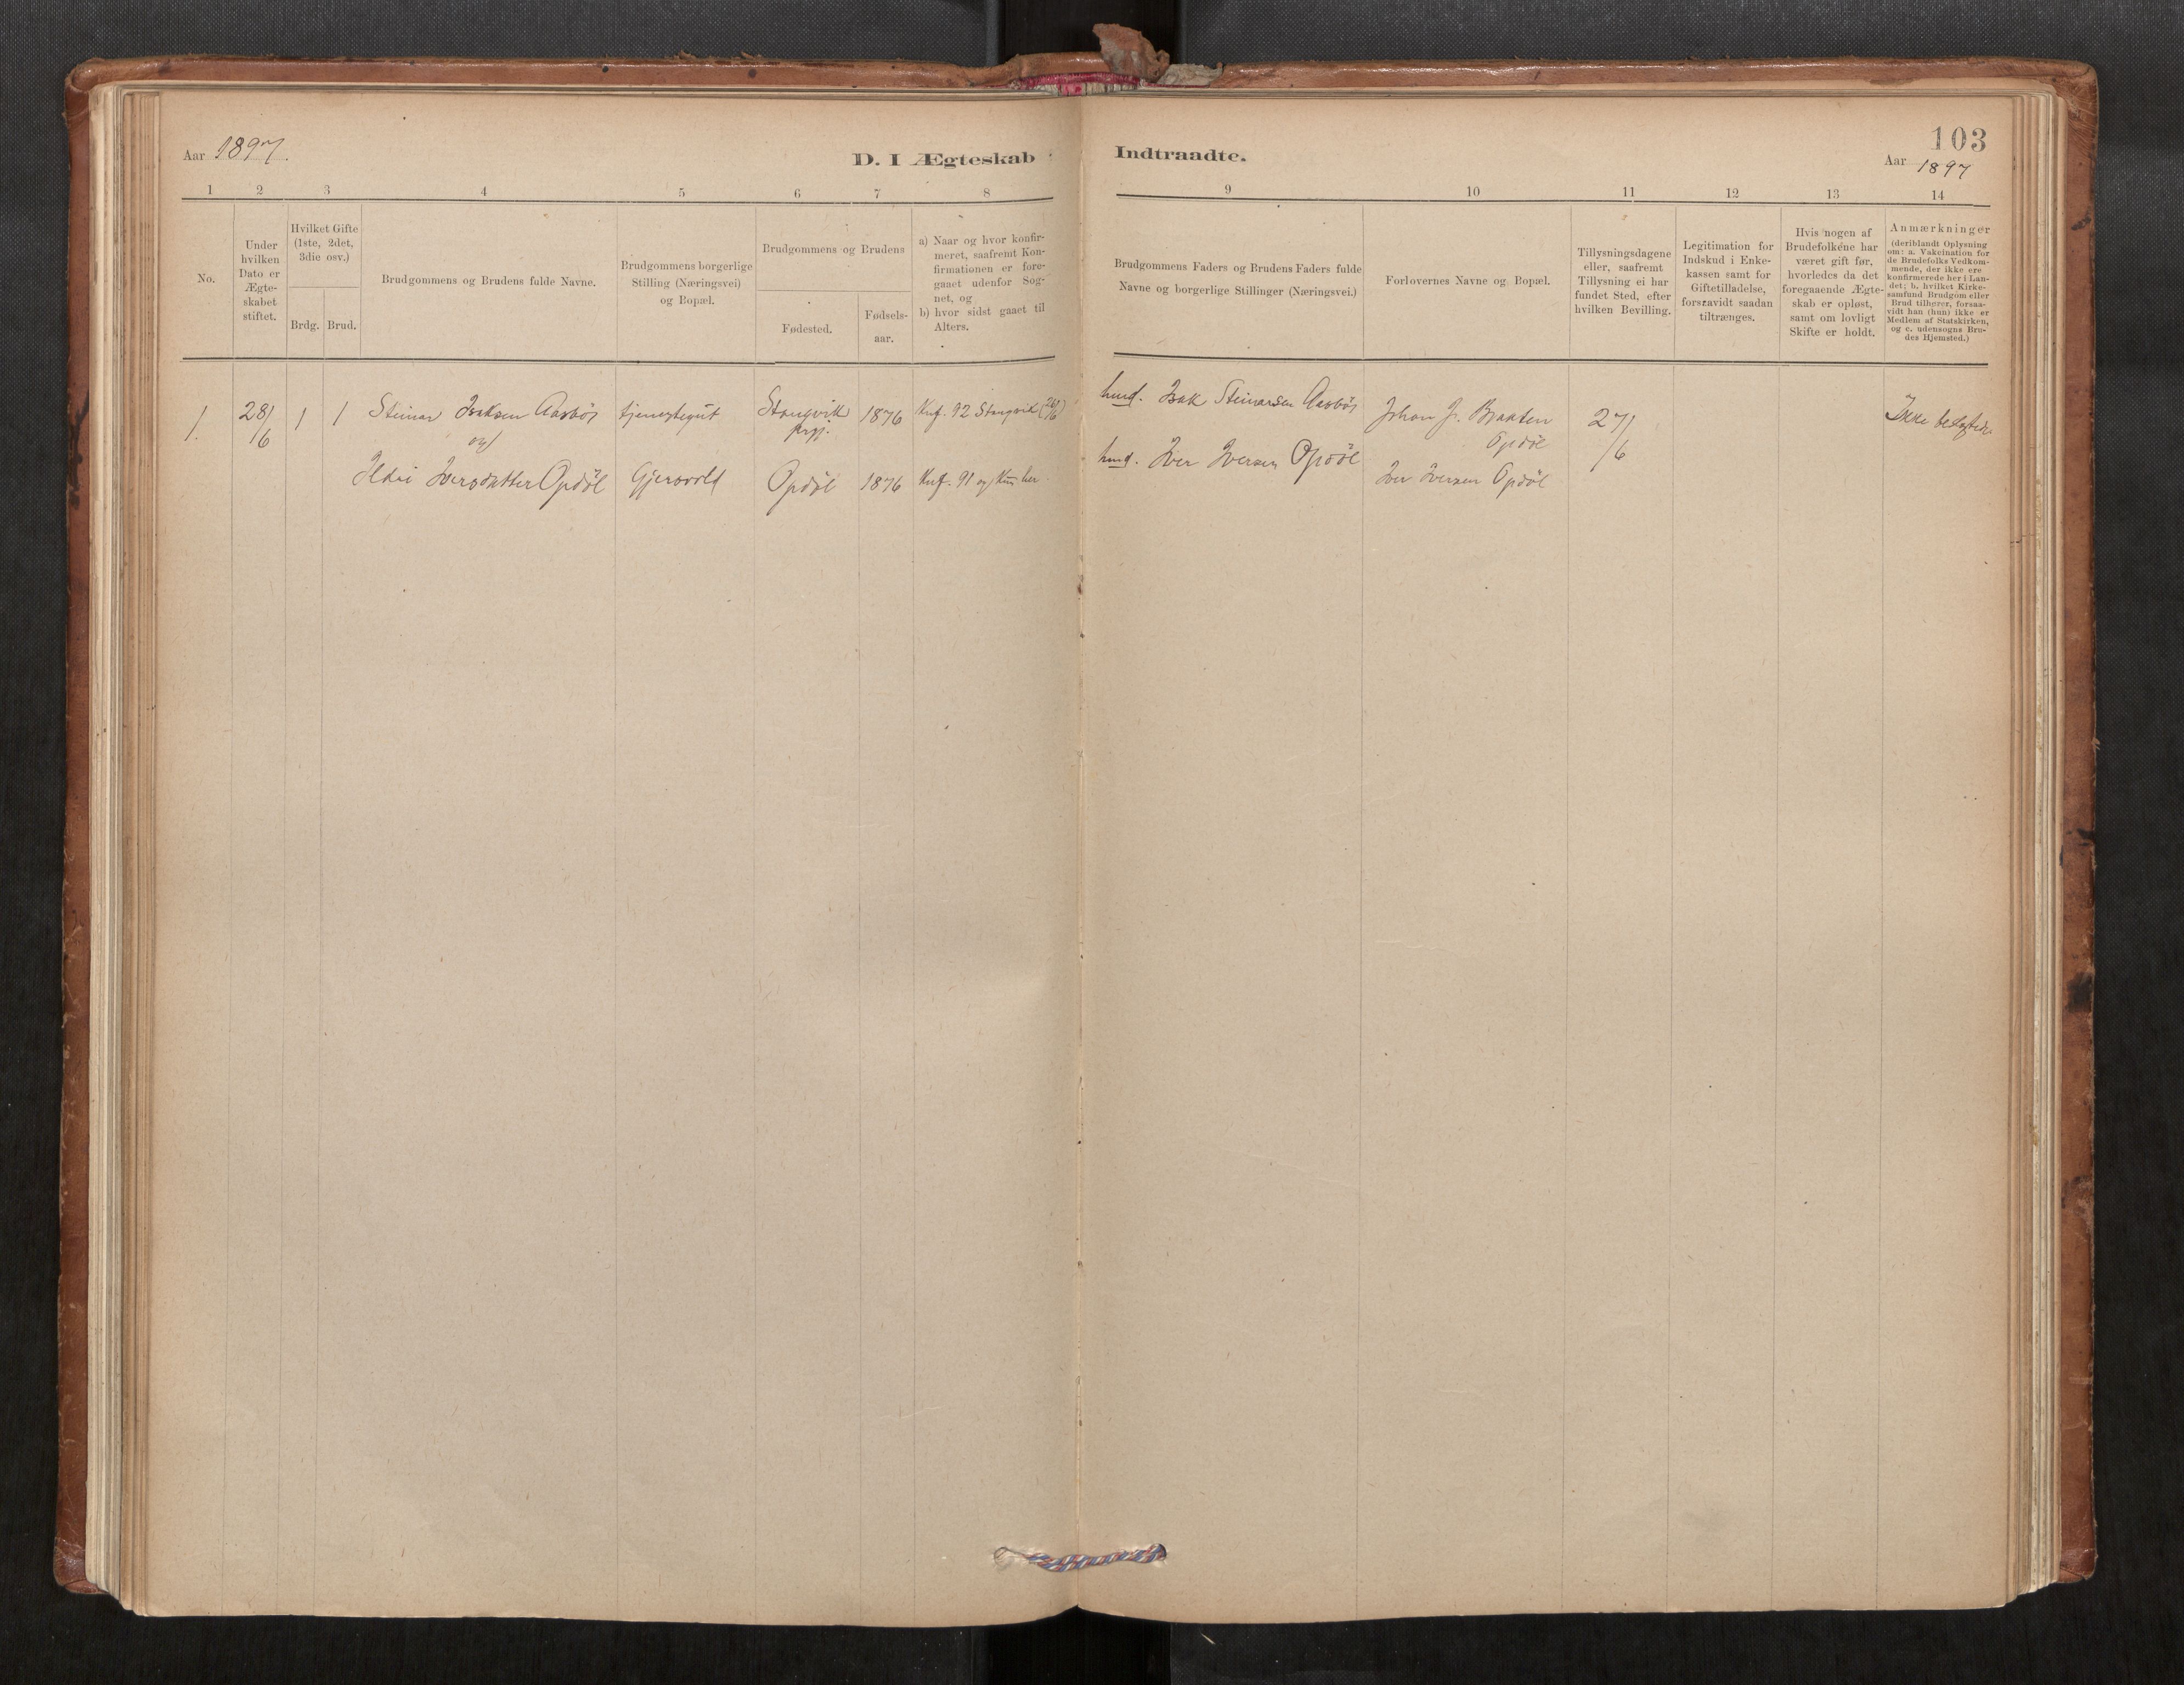 Aar 1897.
D. I Ægteskab
1 2 3 4 5 6 7 8
No.
Under
hvilken
Dato er
Ægte-
skabet
stiftet.
Hvilket Gifte
(1ste, 2det,
3die osv.)
Brdg. Brud.
Brudgommens og Brudens fulde Navne.
Brudgommens borgerlige
Stilling (Næringsvei)
og Bopæl.
Brudgommens og Brudens
Fødested.
Fødsels-
aar.
a) Naar og hvor konfir-
meret, saafremt Kon-
firmationen er fore-
gaaet udenfor Sog-
net, og
b) hvor sidst gaaet til
Alters.
1. 28/6 1 1 Steinar Isaksen Aasbøs tjenestegut Stangvik 1876 Knf. 92 Stangvik (26/6)
og prgj.
Ildri Iversdatter Opdøl Gjersvold Opdøl 1876 Knf. 91 og Kom. her.
103
Indtraadte.
Aar 1897
9 10 11 12 13 14
Brudgommens Faders og Brudens Faders fulde
Navne og borgerlige Stillinger (Næringsvei.)
Forlovernes Navne og Bopæl.
Tillysningsdagene
eller, saafremt
Tillysning ei har
fundet Sted, efter
hvilken Bevilling.
Legitimation for
Indskud i Enke-
kassen samt for
Giftetilladelse,
forsaavidt saadan
tiltrænges.
Hvis nogen af
Brudefolkene har
været gift før,
hvorledes da det
foregaaende Ægte-
skab er opløst,
samt om lovligt
Skifte er holdt.
Anmærkninger
(deriblandt Oplysning
om: a. Vakcination for
de Brudefolks Vedkom-
mende, der ikke ere
konfirmerede her i Lan-
det; b. hvilket Kirke-
samfund Brudgom eller
Brud tilhører, forsaa-
vidt han (hun) ikke er
Medlem af Statskirken,
og c. udensogns Bru-
des Hjemsted.)
Isak Steinarsen Aasbøs Johan J. Braaten 27/6 Ikke
Opdøl
Iver Iversen Opdøl
Iver Iversen Opdøl